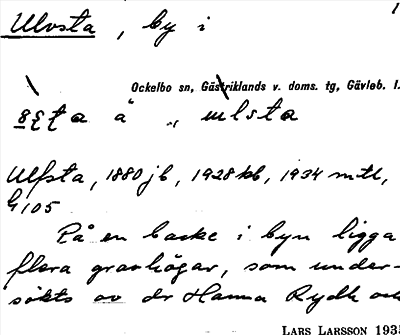 Ulvsta, by i
Ockelbo sn, Gästriklands v. doms. tg, Gävleb. l.
å ulsta
Ulfsta, 1880 jb, 1928 kb, 1934 mtl,
G 105
På en backe i byn ligga
flera gravhögar, som under-
sökts av dr Hanna Rydh och
LARS LARSSON 1935